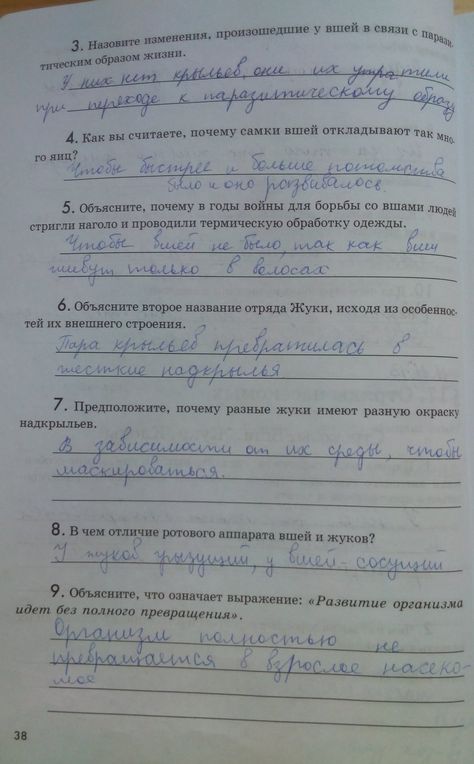 3. Назовите изменения, произошедшие у вшей в связи с парази-
тическим образом жизни.
У них нет крыльев, они их утратили
при переходе к паразитическому образу
4. Как вы считаете, почему самки вшей откладывают так мно-
го яиц?
Чтобы быстрее и больше потомства
было и оно развивалось.
5. Объясните, почему в годы войны для борьбы со вшами людей
стригли наголо и проводили термическую обработку одежды.
Чтобы вшей не было, так как вши
живут только в волосах
6. Объясните второе название отряда Жуки, исходя из особеннос-
тей их внешнего строения.
Пара крыльев превратилась в
жесткие надкрылья
7. Предположите, почему разные жуки имеют разную окраску
надкрыльев.
В зависимости от их среды, чтобы
маскироваться.
8. В чем отличие ротового аппарата вшей и жуков?
У жуков грызущий, у вшей - сосущий
9. Объясните, что означает выражение: «Развитие организма
идет без полного превращения».
Организм полностью не
превращается в взрослое насеко-
мое
38